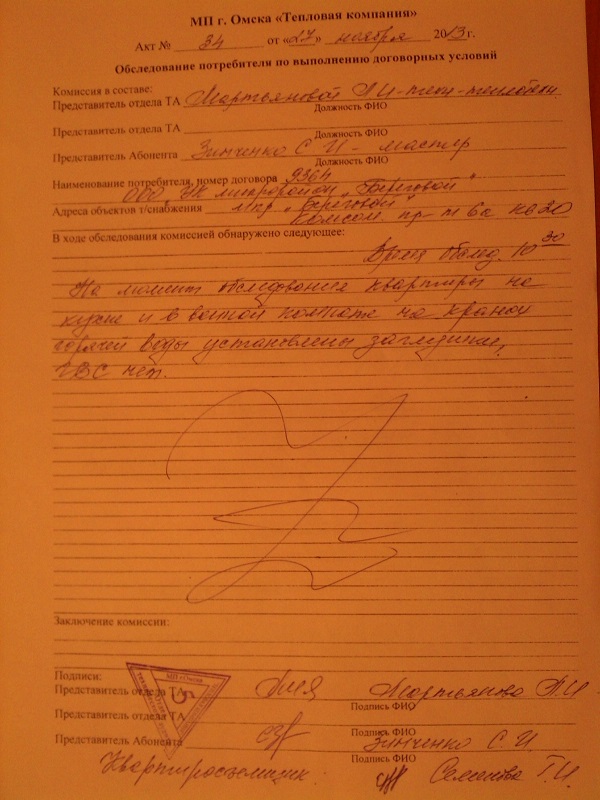 МП г. Омска «Тепловая компания»
Акт № 34 от «27» ноября 2013г.
Обследование потребителя по выполнению договорных условий
Комиссия в составе:
Представитель отдела ТА Мартьяновой Л И-техн-теплотехн.
Должность ФИО
Представитель отдела ТА
Должность ФИО
Представитель Абонента Зинченко С И - мастер
Должность ФИО
Наименование потребителя, номер договора 9364
ООО „УК микрорайон „Береговой"
Адреса объектов т/снабжения м/кр „Береговой"
Комсом. пр-т 6а кв 20
В ходе обследования комиссией обнаружено следующее:
Время обслед. 10 30
На момент обследования квартиры на
кухне и в ванной комнате на кранах
горячей воды установлены заглушки,
ГВС нет.
Заключение комиссии:
Подписи:
Представитель отдела ТА Мартьянова Л.И
Подпись ФИО
Представитель отдела ТА
Подпись ФИО
Представитель Абонента Зинченко С. И.
Подпись ФИО
Квартиросъемщик: Г.И.
МП г.Омска
5